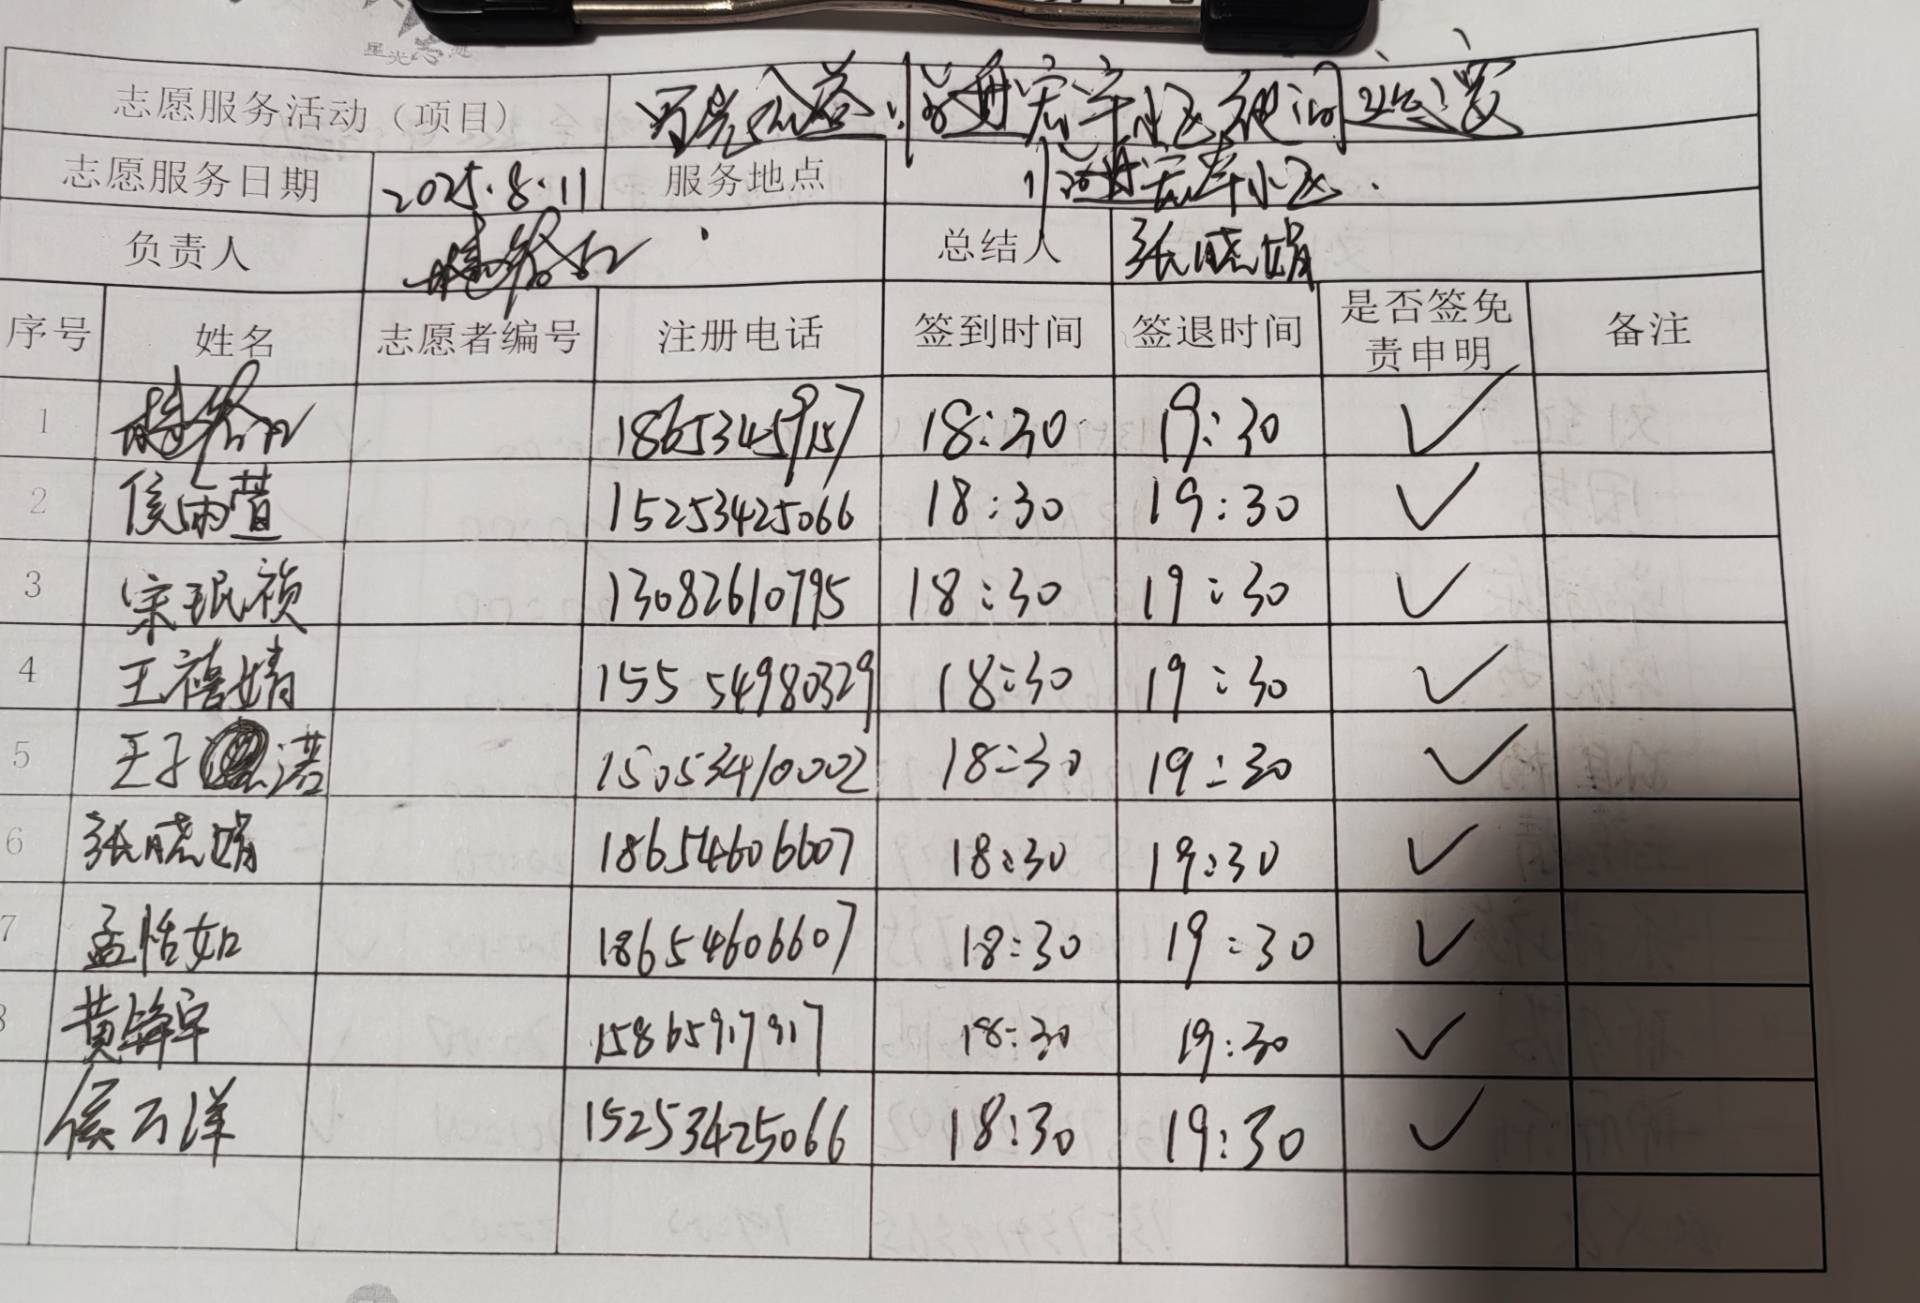 星光志愿
志愿服务活动（项目） 公益 宏宇小区夜间巡逻
志愿服务日期 2025.8.11 服务地点 宏宇小区.
负责人 总结人 张晓娟
序号 姓名 志愿者编号 注册电话 签到时间 签退时间 是否签免责申明 备注
1 18653459157 18:30 19:30 ✓
2 侯雨萱 15253425066 18:30 19:30 ✓
3 宋珉祯 13082610795 18:30 19:30 ✓
4 王禧婧 15554980329 18:30 19:30 ✓
5 王子诺 15053410002 18:30 19:30 ✓
6 张晓娟 18654606607 18:30 19:30 ✓
7 孟恬如 18654606607 18:30 19:30 ✓
8 黄 15865917917 18:30 19:30 ✓
侯万洋 15253425066 18:30 19:30 ✓